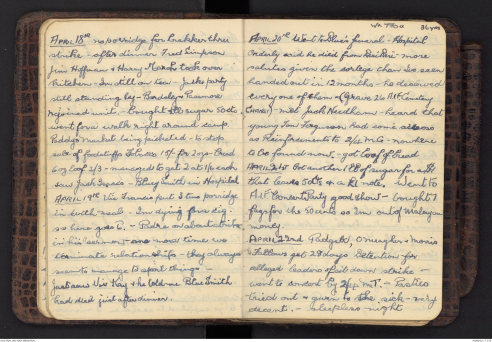 APRIL 18th no porridge for breakker thru
strike - after dinner Fred Simpson
Jim Hoffman & Harry March took over
kitchen - Im still on tea - Jacks party
still standing by - Bardsley & Passmore
rejoined unit - bought sugar 50cts
went for a walk right around camp.
Paddys market being picketed - to stop
sale of foodstuffs Tobacco 15/- for 2ozs Bread
6oz loaf 2/3 - managed to get 2 at 1/6 each
saw Jack - Bluey Smith in Hospital
APRIL 19th Vic Francis put 3 tins porridge
in with meal - Im dying for a dig -
so here goes C. - Padre on about
in his sermon - one more time we
terminate relationships - they always
seem to manage to spoil things -
Just came Vic Kay & he told me Blue Smith
had died just after dinner.
APRIL 20th Went to Blue's funeral - Hospital
Orderly said he died from Beri Beri - more
salutes given the sortege than Ive seen
handed out in 12 months - he deserved
every one of them (Grave 26 AIF Cemetery
) - met Jack Needham - heard that
young Tom Ferguson had come
as Reinforcements to 2/4 MG - nowhere
to be found now - got loaf of bread
APRIL 21st Got another 1 lb of sugar for
that leaves 50cts & a £1 note. Went to
AIF Concert Party good show - bought
fags for the 50 cents so Im out of Malayan
money.
APRIL 22nd Padgett, O'Meagher & Morris
& Fellows get 28 days Detention for
alleged leaders of sit down strike -
went to concert by 2/4 M.T. - Pasties
tried out & given to the sick - very
decent. - sleepless night